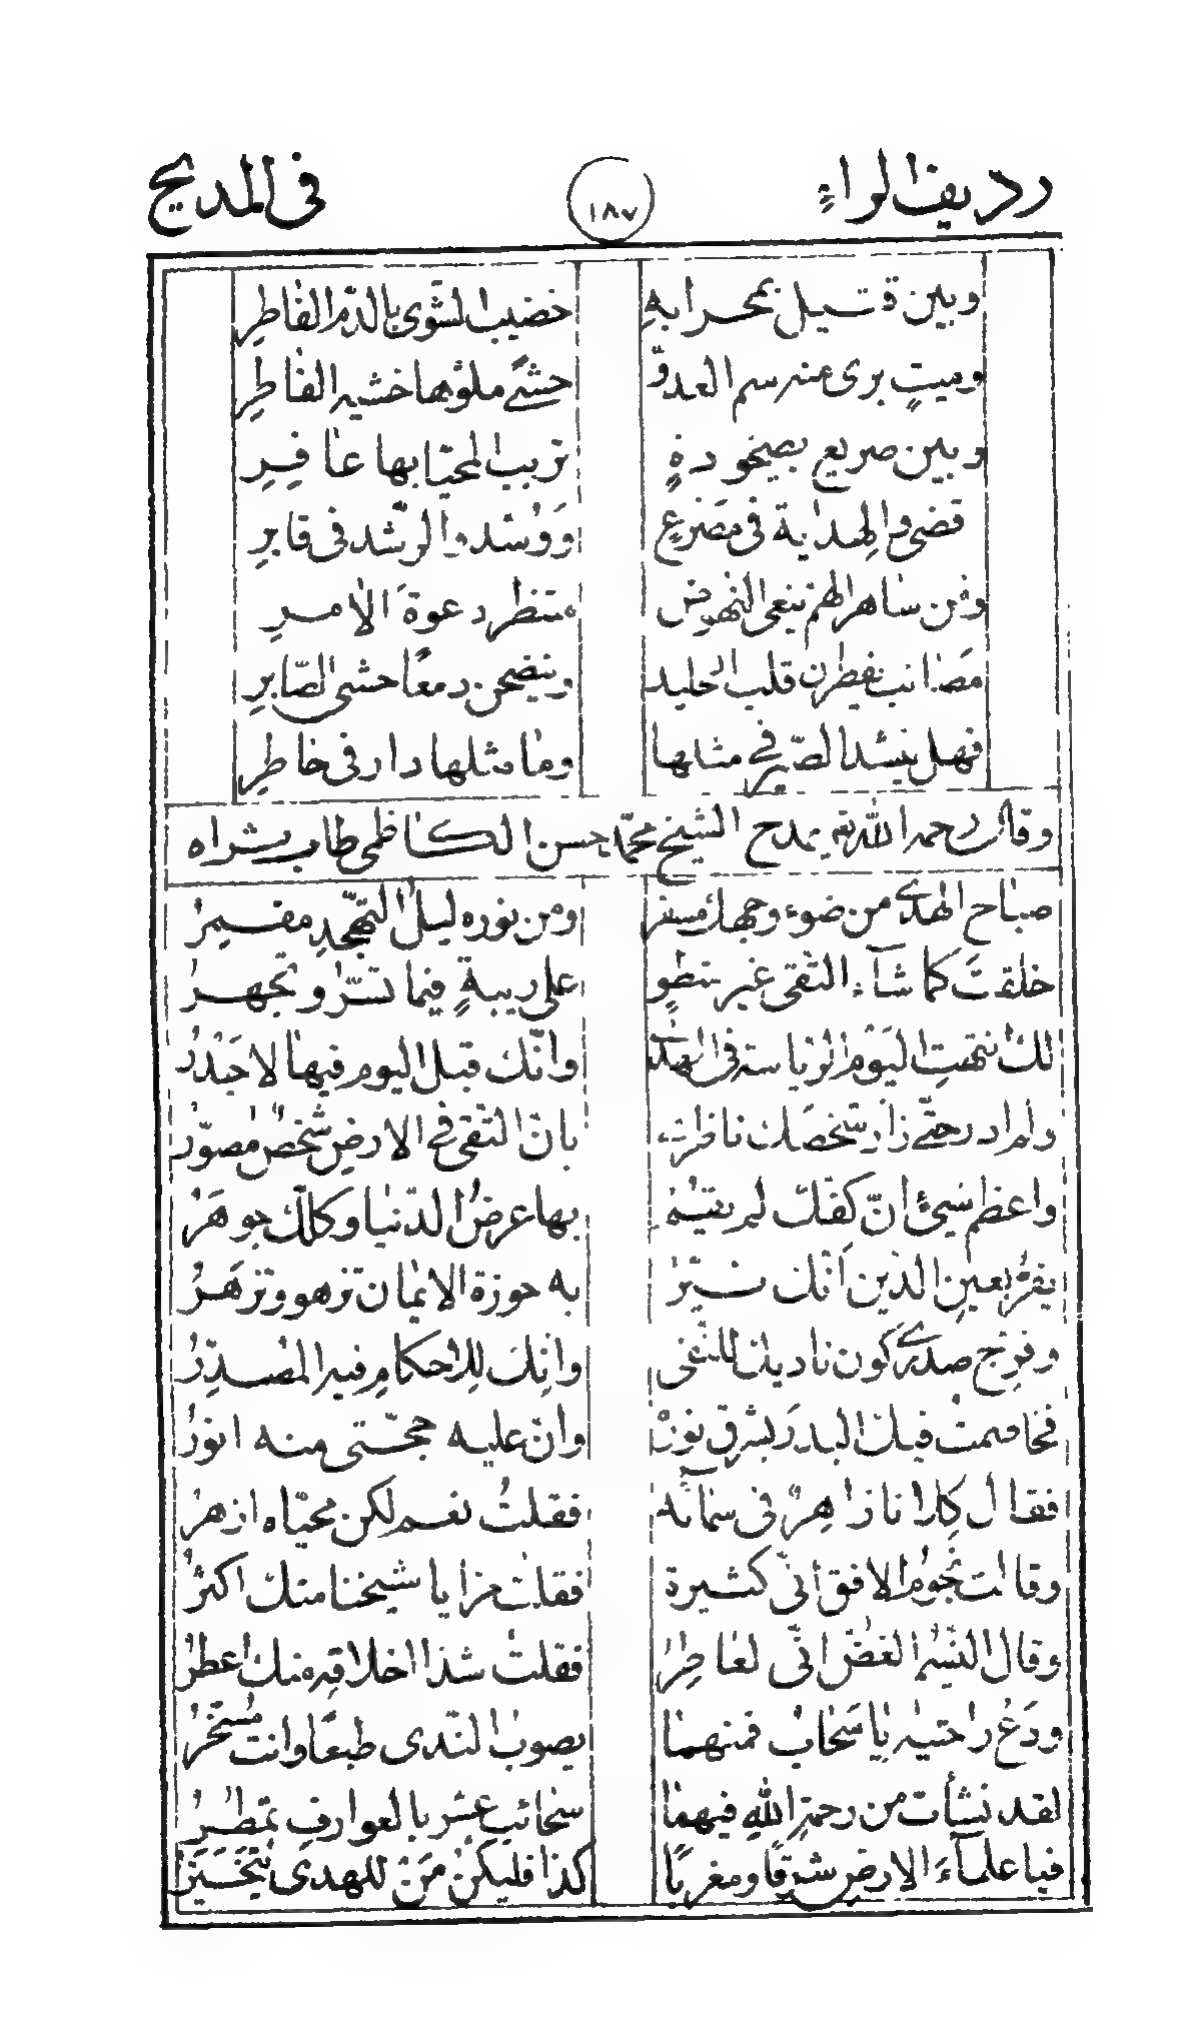 رديف الراء ١٨٧ في المديح
وبين قتيل بمحرابهِ خضيب الشوى بالدّم الفاطرِ
وميتٍ برى عنه سم العدوّ حشىً ملؤها خشية الفاطرِ
وبين صريع بصيخودةٍ تريب المحيّا بها عافِرِ
قضى والهداية في مصرعٍ ووُسّد والرّشد في قابرِ
ومن ساهر الهم تبغي النهوض منتظر دعوة الامرِ
مصائب يفطرن قلب الجليد وينضحن دمعًا حشى الصّابرِ
فهل ينشد الصّبر في مثلها وما مثلها دار في خاطرِ
وقال رحمه الله تع يمدح الشيخ محمّد حسن الكاظمي طاب ثراه
صباح الهدى من ضوء وجهك مسفر ومن نوره ليل التهجّدِ مقمرُ
خلقتَ كما شآء التقى غير منطوٍ على ريبةٍ فيما تسرّ وتجهرُ
لك انتهتِ اليَوْم الرياسة في الهدى وانّك قبل اليوم فيها لاجَدْدُ
ولم ادر حتّى زار شخصك ناظرى بانّ التقى في الارض شخص مصوّر
واعظم شيئ انّ كفّك لم يقيمُ بها عرضُ الدّنيا وكلّك جوهَرُ
يقرّ بعينِ الدّين انّك نيّرٌ به حوزة الايمان تزهو وتزهَرُ
وفرّج صدرى كون ناديك للتقى وانك للاحكام فيه المصدّرُ
فخاصمتُ فيك البدرَ يشرق نورُهُ وان عليه حجّتى منه انورُ
فقال كلانا زاهرٌ في سمآئه فقلتُ نعم لكن محيّاه ازهرُ
وقالت نجومُ الافق انّى كثيرة فقلت مزايا شيخنا منك اكثرُ
وقال النسيمُ الغضّ انّى لعاطِرٌ فقلتُ شذا اخلاقه منك اعطرُ
ودَعْ راحتيه يا سَحابُ فمنهما يصوب الندى طبعًا وانت مسَخّرُ
لقد نشأت من رحمةِ اللهِ فيهما سحائب عشر بالعوارفِ تمطرُ
فيا علمآءَ الارض شرقًا ومغربًا كذا فليكنْ مَنْ للهدى يتخَيّرُ